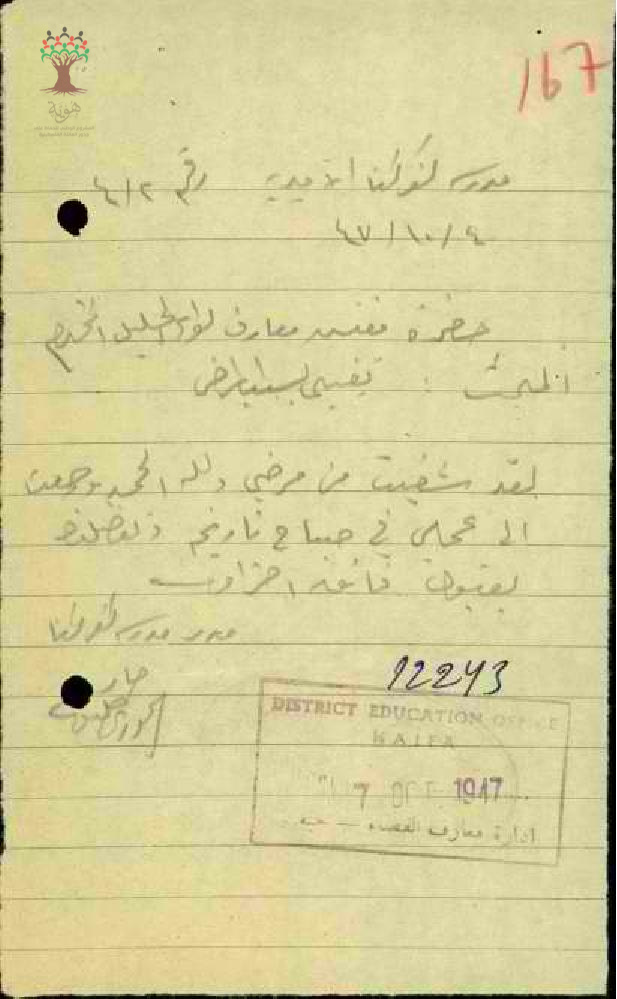 167
هوية
مدرسة كفركنا الأميرية رقم ٤/٢
٤٧/١٠/٤
حضرة مفتش معارف لواء الجليل المحترم
المبحث : تغيبي بسبب المرض
لقد شفيت من مرضي ولله الحمد ورجعت
الى عملي في صباح تاريخه وتفضلوا
بقبول فائق احترامي
مدير مدرسة كفركنا
12243
DISTRICT EDUCATION OFFICE
HAIFA
7 OCT 1947
ادارة معارف القضاء — حيفا